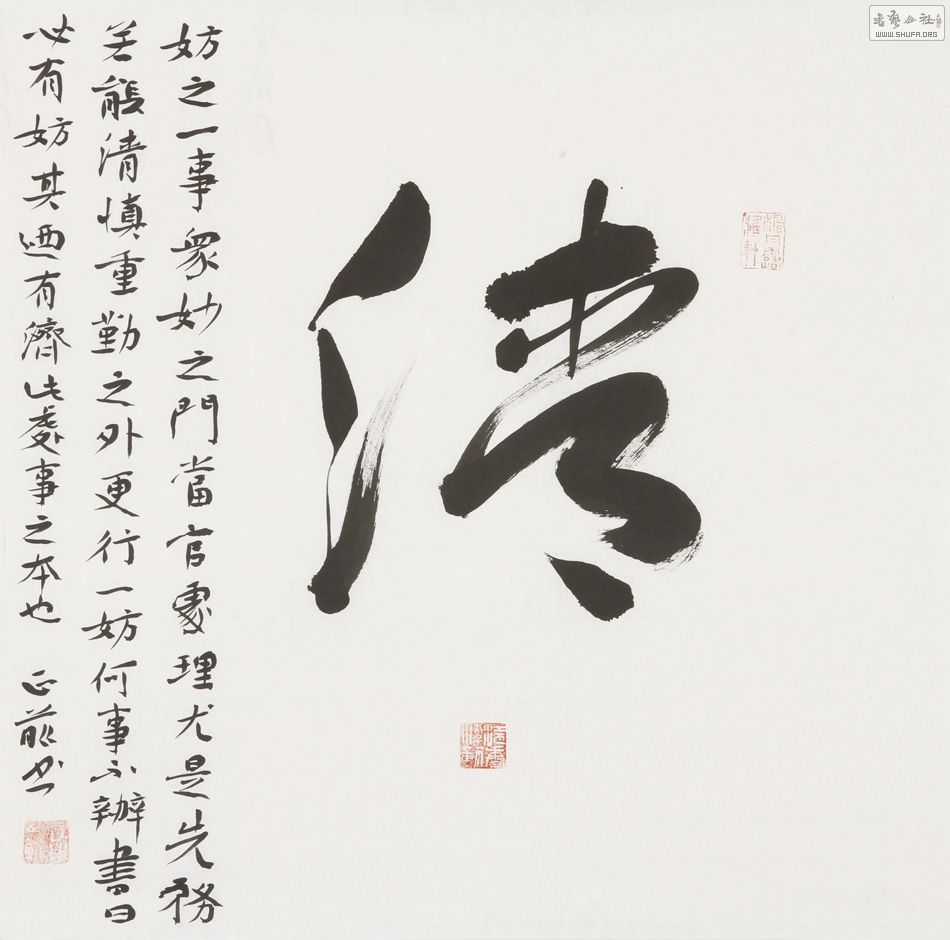 清
妨之一事眾妙之門當官處理尤是先務
若能清慎重勤之外更行一妨何事不辦書曰
必有妨其迺有濟此處事之本也 正书
書藝公社
WWW.SHUFA.ORG